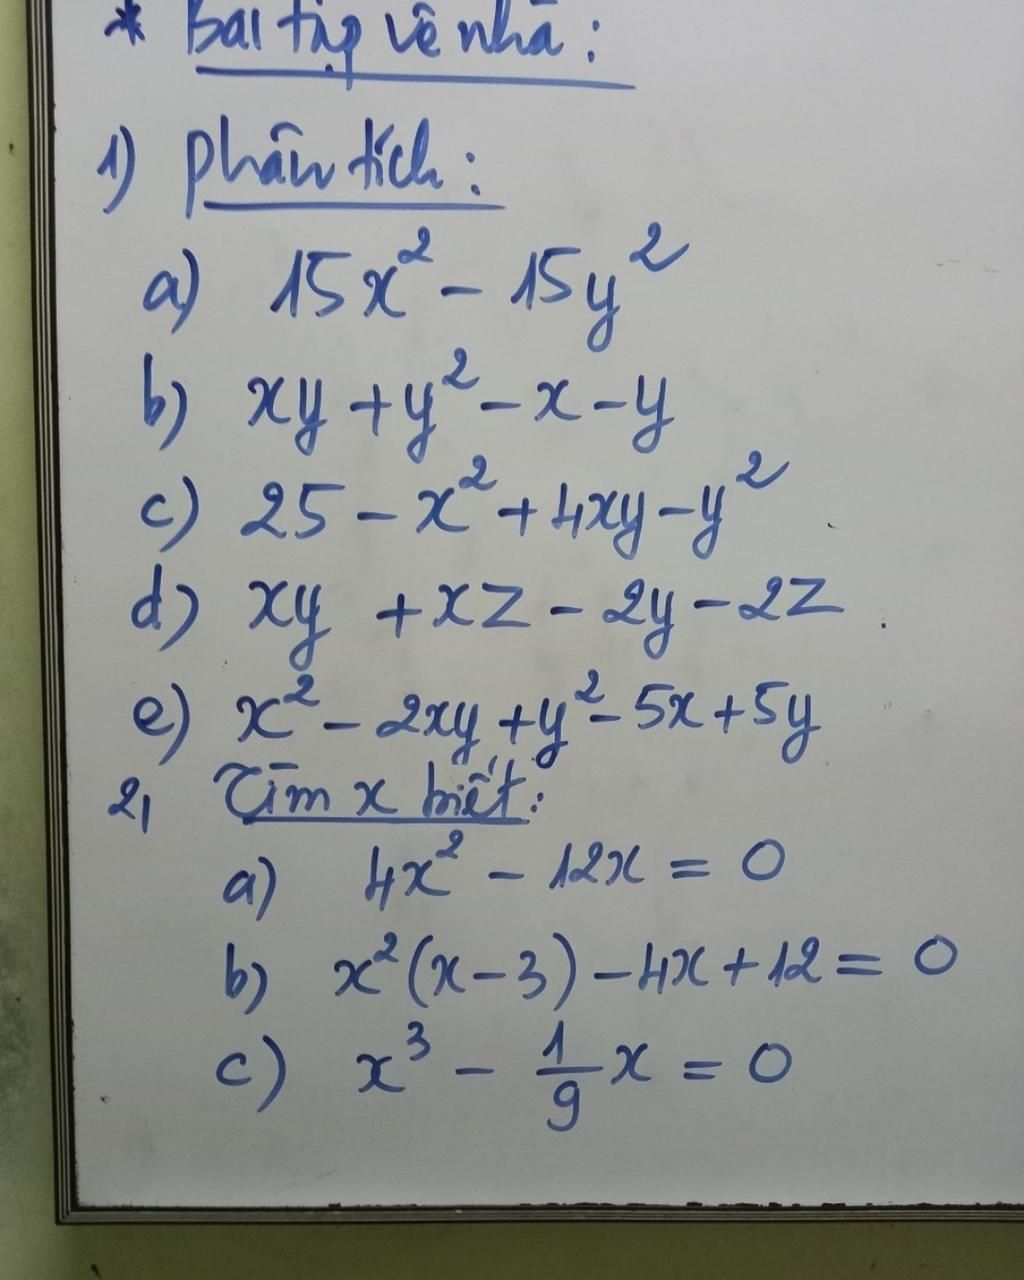 * Bài tập về nhà :
1) phân tích :
a) 15x² - 15y²
b) xy + y² - x - y
c) 25 - x² + 4xy - y²
d) xy + xz - 2y - 2z
e) x² - 2xy + y² - 5x + 5y
2, Tìm x biết :
a) 4x² - 12x = 0
b) x² (x - 3) - 4x + 12 = 0
c) x³ - 1/9 x = 0